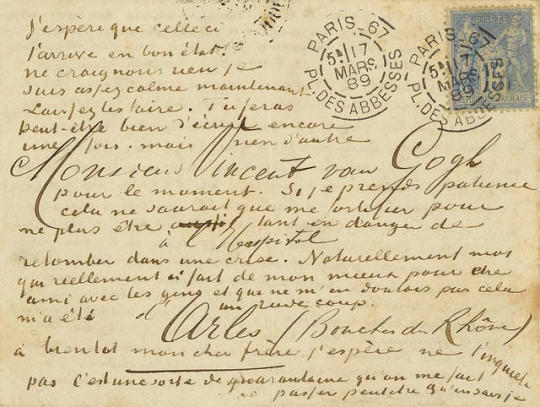 J'espère que celle ci
t'arrive en bon état.
ne craignons rien je
suis assez calme maintenant
Laissez les faire. Tu feras
peut-être bien d'écrire encore
une fois. mais rien d'autre
Monsieur Vincent van Gogh
pour le moment. Si je prends patience
cela ne saurait que me fortifier pour
ne plus être tant en danger de
à l'Hospital
retomber dans une crise. Naturellement moi
qui réellement ai fait de mon mieux pour être
ami avec les gens et qui ne m'en doutais pas cela
m'a été un rude coup.
d'Arles (Bouches du Rhône)
à bientot mon cher frère j'espère ne t'inquiete
pas C'est une sorte de quarantaine qu'on me fait
passer peut être qu'en sais je
PARIS_67
5E 17
MARS
89
PL. DES ABBESSES
PARIS_67
5E 17
MARS
89
PL. DES ABBESSES
POSTE